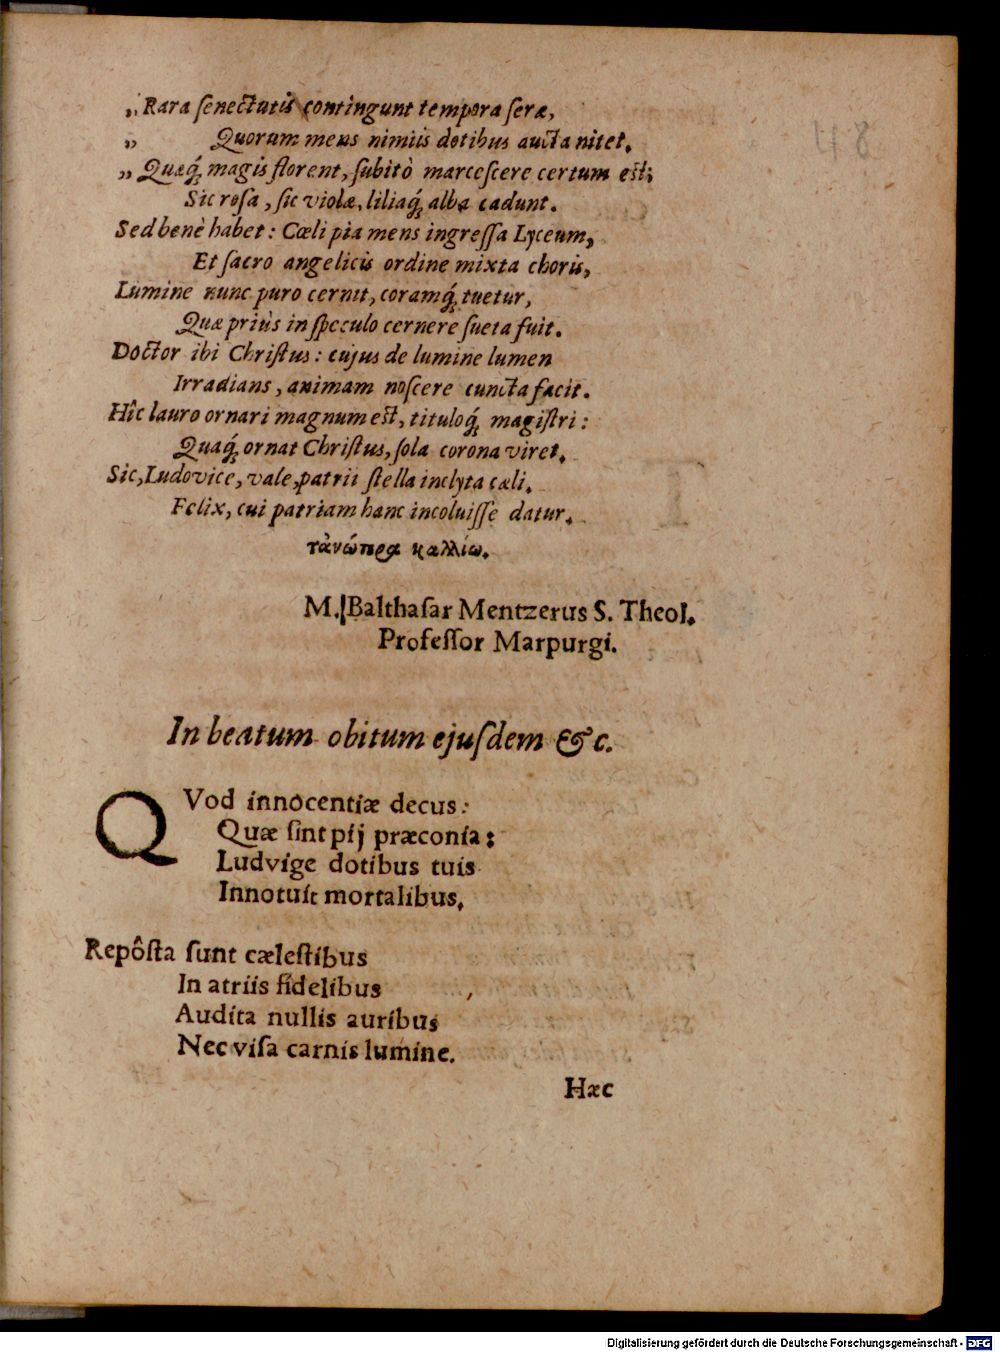 „Rara ſenectutis contingunt tempora ſeræ,
„ Quorum mens nimiis dotibus aucta nitet.
„ Quæq́; magis florent, ſubitò marceſcere certum eſt;
Sic roſa, ſic violæ, liliaq́; alba cadunt.
Sed benè habet: Cœli pia mens ingreſſa Lyceum,
Et ſacro angelicis ordine mixta choris,
Lumine nunc puro cernit, coramq́; tuetur,
Quæ priùs in ſpeculo cernere ſueta fuit.
Doctor ibi Chriſtus: cujus de lumine lumen
Irradians, animam noſcere cuncta facit.
Hîc lauro ornari magnum eſt, tituloq́; magiſtri:
Quaq́; ornat Chriſtus, ſola corona viret.
Sic, Ludovice, vale, patrii ſtella inclyta cœli.
Felix, cui patriam hanc incoluiſſe datur.
τἀνώτερα καλλίω.
M. Balthaſar Mentzerus S. Theol.
Profeſſor Marpurgi.
In beatum obitum ejuſdem &c.
QVod innocentiæ decus:
Quæ ſint pij præconia:
Ludvige dotibus tuis
Innotuit mortalibus.
Repôſta ſunt cæleſtibus
In atriis fidelibus
Audita nullis auribus
Nec viſa carnis lumine.
Hæc
Digitalisierung gefördert durch die Deutsche Forschungsgemeinschaft - DFG